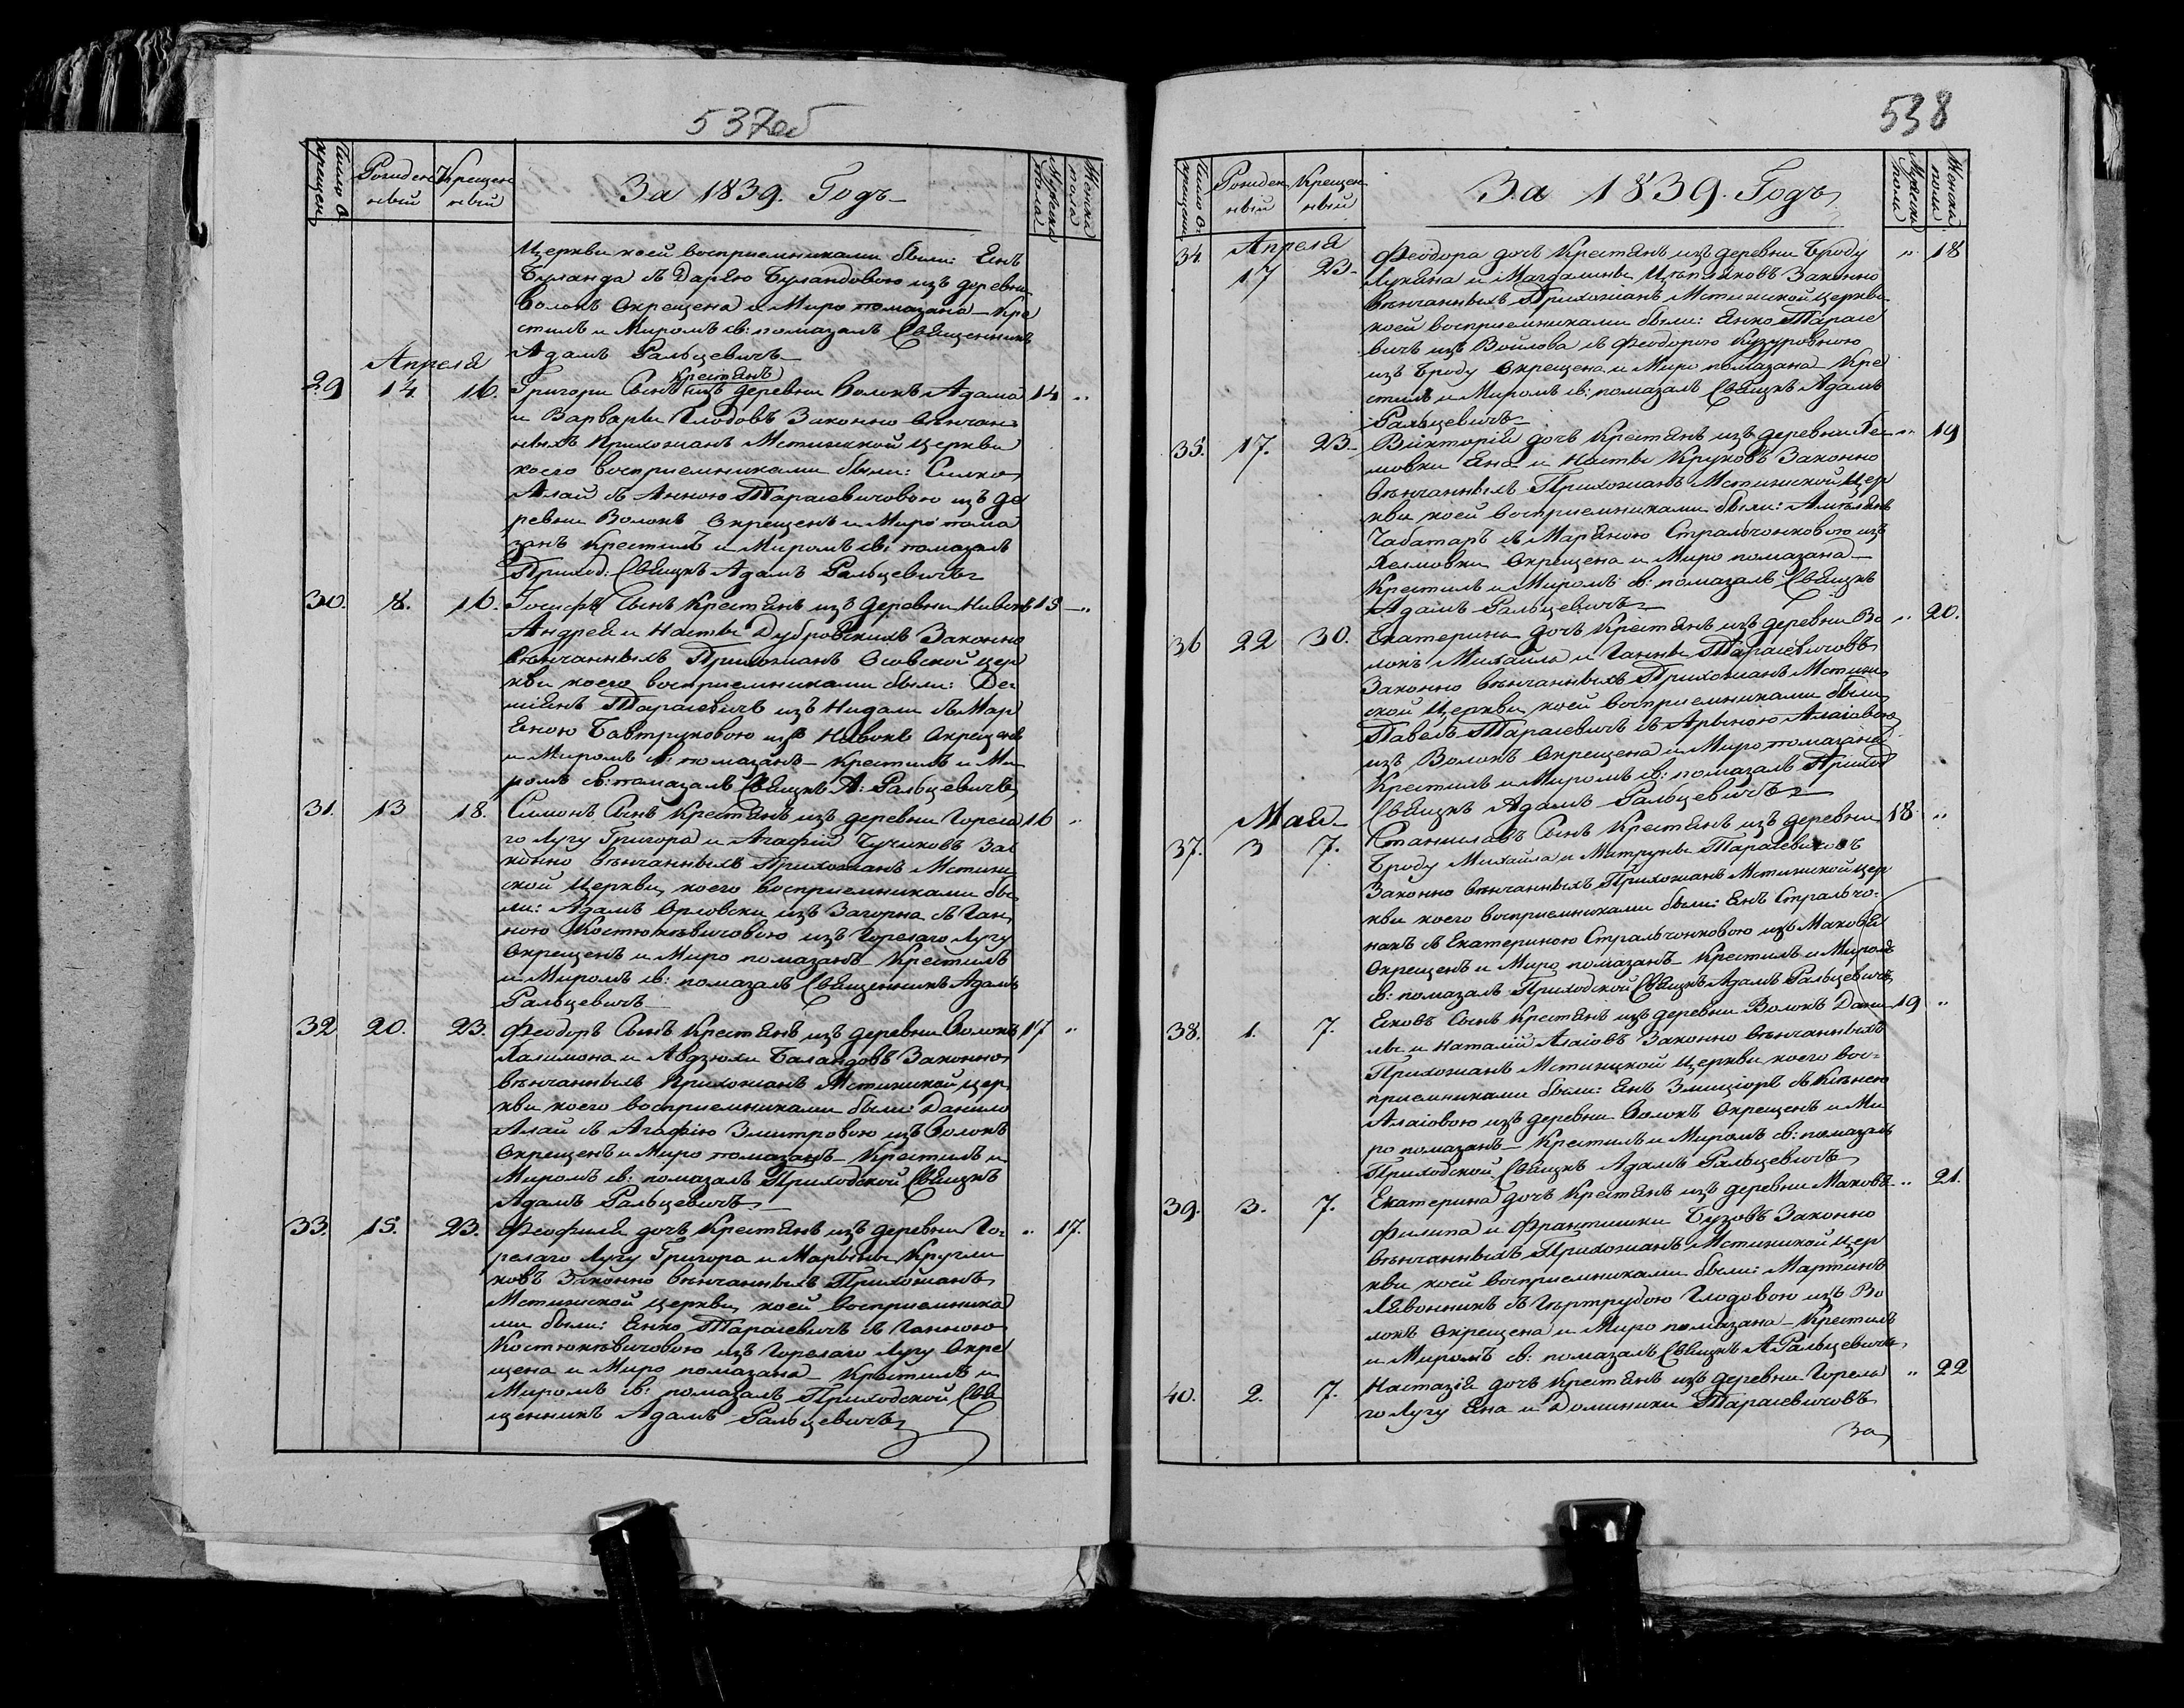 537об
Число
крещен
Рожден
ный
Крещен
ный
За 1839. Годъ
Мужеска
пола
Женска
пола
Церкви коей восприемниками были: Янъ
Буланда съ Дарьею Буландовою изъ деревни
Волокъ Окрещена и Миро помазана Кре
стилъ и Миромъ св: помазалъ Священникъ
Адамъ Ральцевичъ
Апреля
крестьянъ
29 14. 16. Григори Сынъ изъ деревни Волокъ Адама 14 "
и Варвары Глодовъ Законно венчан-
ныхъ Прихожанъ Мстижской Церкви
коего восприемниками были: Силко
Алай съ Анною Тарасевичовою изъ де
ревни Волокъ Окрещенъ и Миро пома
занъ Крестилъ и Миромъ св: помазалъ
Приход: Свящкъ Адамъ Ральцевичъ
30. 8. 16. Іосифъ Сынъ Крестянъ изъ деревни Нивокъ 15 "
Андрея и Насты Дубровскихъ Законно
Венчанныхъ Прихожанъ Осовской цер
кви коего восприемниками были: Де
Тарасевичъ изъ Нидали съ Мар
яною Бавтруковою изъ Нивокъ Окрещенъ
и Миромъ св: помазанъ Крестилъ и Ми
ромъ св: помазалъ Свящкъ А: Ральцевичъ
31. 13 18. Симонъ Сынъ Крестянъ изъ деревни Горела 16 "
го Лугу Григора и Агафіи Чучковъ За
конно венчанныхъ Прихожанъ Мстиж
ской Церкви, коего восприемниками бы
ли: Адамъ Орловски изъ Загорна съ Ган
ною Костюкевичовою изъ Горелаго Лугу
Окрещенъ и Миро помазанъ Крестилъ
и Миромъ св: помазалъ Священникъ Адамъ
Ральцевичъ
32 20. 23. Феодоръ Сынъ Крестянъ изъ деревни Волокъ 17 "
Халимона и Авдзюли Баландовъ Законно
венчанныхъ Прихожанъ Мстижской цер
кви коего восприемниками были Данило
Алай съ Агафію Змитровою изъ Волокъ
Окрещенъ и Миро помазанъ Крестилъ и
Миромъ св: помазалъ Приходской Свящкъ
Адамъ Ральцевичъ
33. 15. 23. Феофиля дочъ Крестянъ изъ деревни Го- " 17.
релаго Лугу Григора и Марыны Кругли
ковъ Законно венчанныхъ Прихожанъ
Мстижской Церкви, коей восприемника
ми были: Янко Тарасевичъ съ Ганною
Костюкевичовою изъ Горелаго Лугу Окре
щена и Миро помазана Крестилъ и
Миромъ св: помазалъ Приходской Свя
щенникъ Адамъ Ральцевичъ
538
Число
крещен
Рожден
ный
Крещен
ный
За 1839. Годъ
Мужеска
пола
Женска
пола
Апреля
34. 17 23. Феодора дочъ Крестянъ изъ деревни Броду " 18
Лукяна и Магдалины Законно
венчанныхъ Прихожанъ Мстижской церкви
коей восприемниками были: Янко Тарасе
вичъ изъ Войлова съ Феодорою
изъ Броду Окрещена и Миро помазана Кре
стилъ и Миромъ св: помазалъ Свящкъ Адамъ
Ральцевичъ
35. 17. 23. Викторія дочъ Крестянъ изъ деревни Хел " 19
мовки Яна и Насты Круковъ Законно
венчанныхъ Прихожанъ Мстижской Цер
кви коей восприемниками были: Амелянъ
Чабатаръ съ Марьяною Стральчонковою изъ
Хелмовки Окрещена и Миро помазана
Крестилъ и Миромъ св: помазалъ Свящкъ
Адамъ Ральцевичъ
36 22 30. Екатерина дочъ Крестянъ изъ деревни Во " 20.
локъ Михайла и Ганны Тарасевичовъ
Законно венчанныхъ Прихожанъ Мстиж
ской Церкви, коей восприемниками были
Павелъ Тарасевичъ съ Арыною Алаіовою
изъ Волокъ Окрещена и Миро помазана
Крестилъ и Миромъ св: помазалъ Приход
Свящкъ Адамъ Ральцевичъ
Мая
37. 3 7. Станиславъ Сынъ Крестянъ изъ деревни 18. "
Броду Михайла и Матруны Тарасевичовъ
Законно венчанныхъ Прихожанъ Мстижской цер
кви коего восприемниками были: Янъ Стральчо-
накъ съ Екатериною Стральчонковою изъ Маковя
Окрещенъ и Миро помазанъ Крестилъ и Миромъ
св: помазалъ Приходской Свящкъ Адамъ Ральцевичъ
38. 1. 7. Яковъ Сынъ Крестянъ изъ деревни Волокъ Дани 19 "
лы и Наталіи Алаіовъ Законно венчанныхъ
Прихожанъ Мстижской Церкви коего вос-
приемниками были: Янъ Змициоръ съ
Алаіовою изъ деревни Волокъ Окрещенъ и Ми
ро помазанъ Крестилъ и Миромъ св: помазалъ
Приходской Свящкъ Адамъ Ральцевичъ
39. 3. 7. Екатерина дочъ Крестянъ изъ деревни Маковъ " 21.
Филипа и Франтишки Бузовъ Законно
венчанныхъ Прихожанъ Мстижской Цер
кви коей восприемниками были: Мартинъ
Лявонникъ съ Гертрудою Глодовою изъ Во
локъ Окрещена и Миро помазана Крестилъ
и Миромъ св: помазалъ Свящкъ А Ральцевичъ
40. 2. 7. Настазія дочъ Крестянъ изъ деревни Горела " 22
го Лугу Яна и Доминики Тарасевичовъ
За